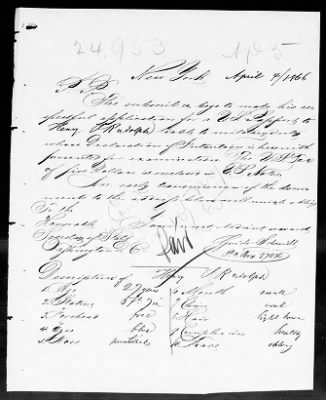 24,953 Apl 5
New York April 4/1866
The subscriber begs to made his res
pectful application for a U S Passport to
Henry Rudolph
whose Declaration of Intention is herewith
presented for examination. The U.S. Tax
of five Dollars is enclosed in U.S. Notes
An early transmission of the docu
ments to the address below will much oblige
To the
Honorable Your most obedient servant
Secretary of State
Washington D. C.
Paid
P.O. Box
Description of Henry Rudolph
1. Age 27 years 6 Mouth small
2. Stature 5 ft 7 in 7 Chin oval
3. Forehead free 8 Hair light brown
4. Eyes blue 9 Complexion healthy
5. Nose 10 Face oblong